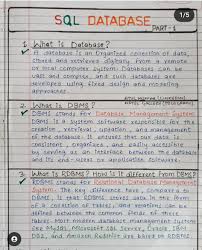 1/5
SQL DATABASE
PART - 1
1. What is Database?
A database is an Organized collection of data,
stored and retrieved digitally from a remote
or local computer system. Databases can be
vast and complex, and such databases are
developed using fixed design and modeling
approaches.
2. What is DBMS?
DBMS stands for Database Management System.
DBMS is a system software responsible for the
creation, retrieval, updation, and management
of the database. It ensures that our data is
consistent, organized, and easily accessible
by serving as an interface between the database
and its end-users or application software.
3. What is RDBMS? How is it different from DBMS?
RDBMS stands for Relational Database Management
System. The key difference here, compared to
DBMS, is that RDBMS stores data in the form
of a collection of tables, and relations can be
defined between the common fields of these
tables. Most modern database management systems
like MySQL, Microsoft SQL Server, Oracle, IBM
DB2, and Amazon Redshift are based on RDBMS.